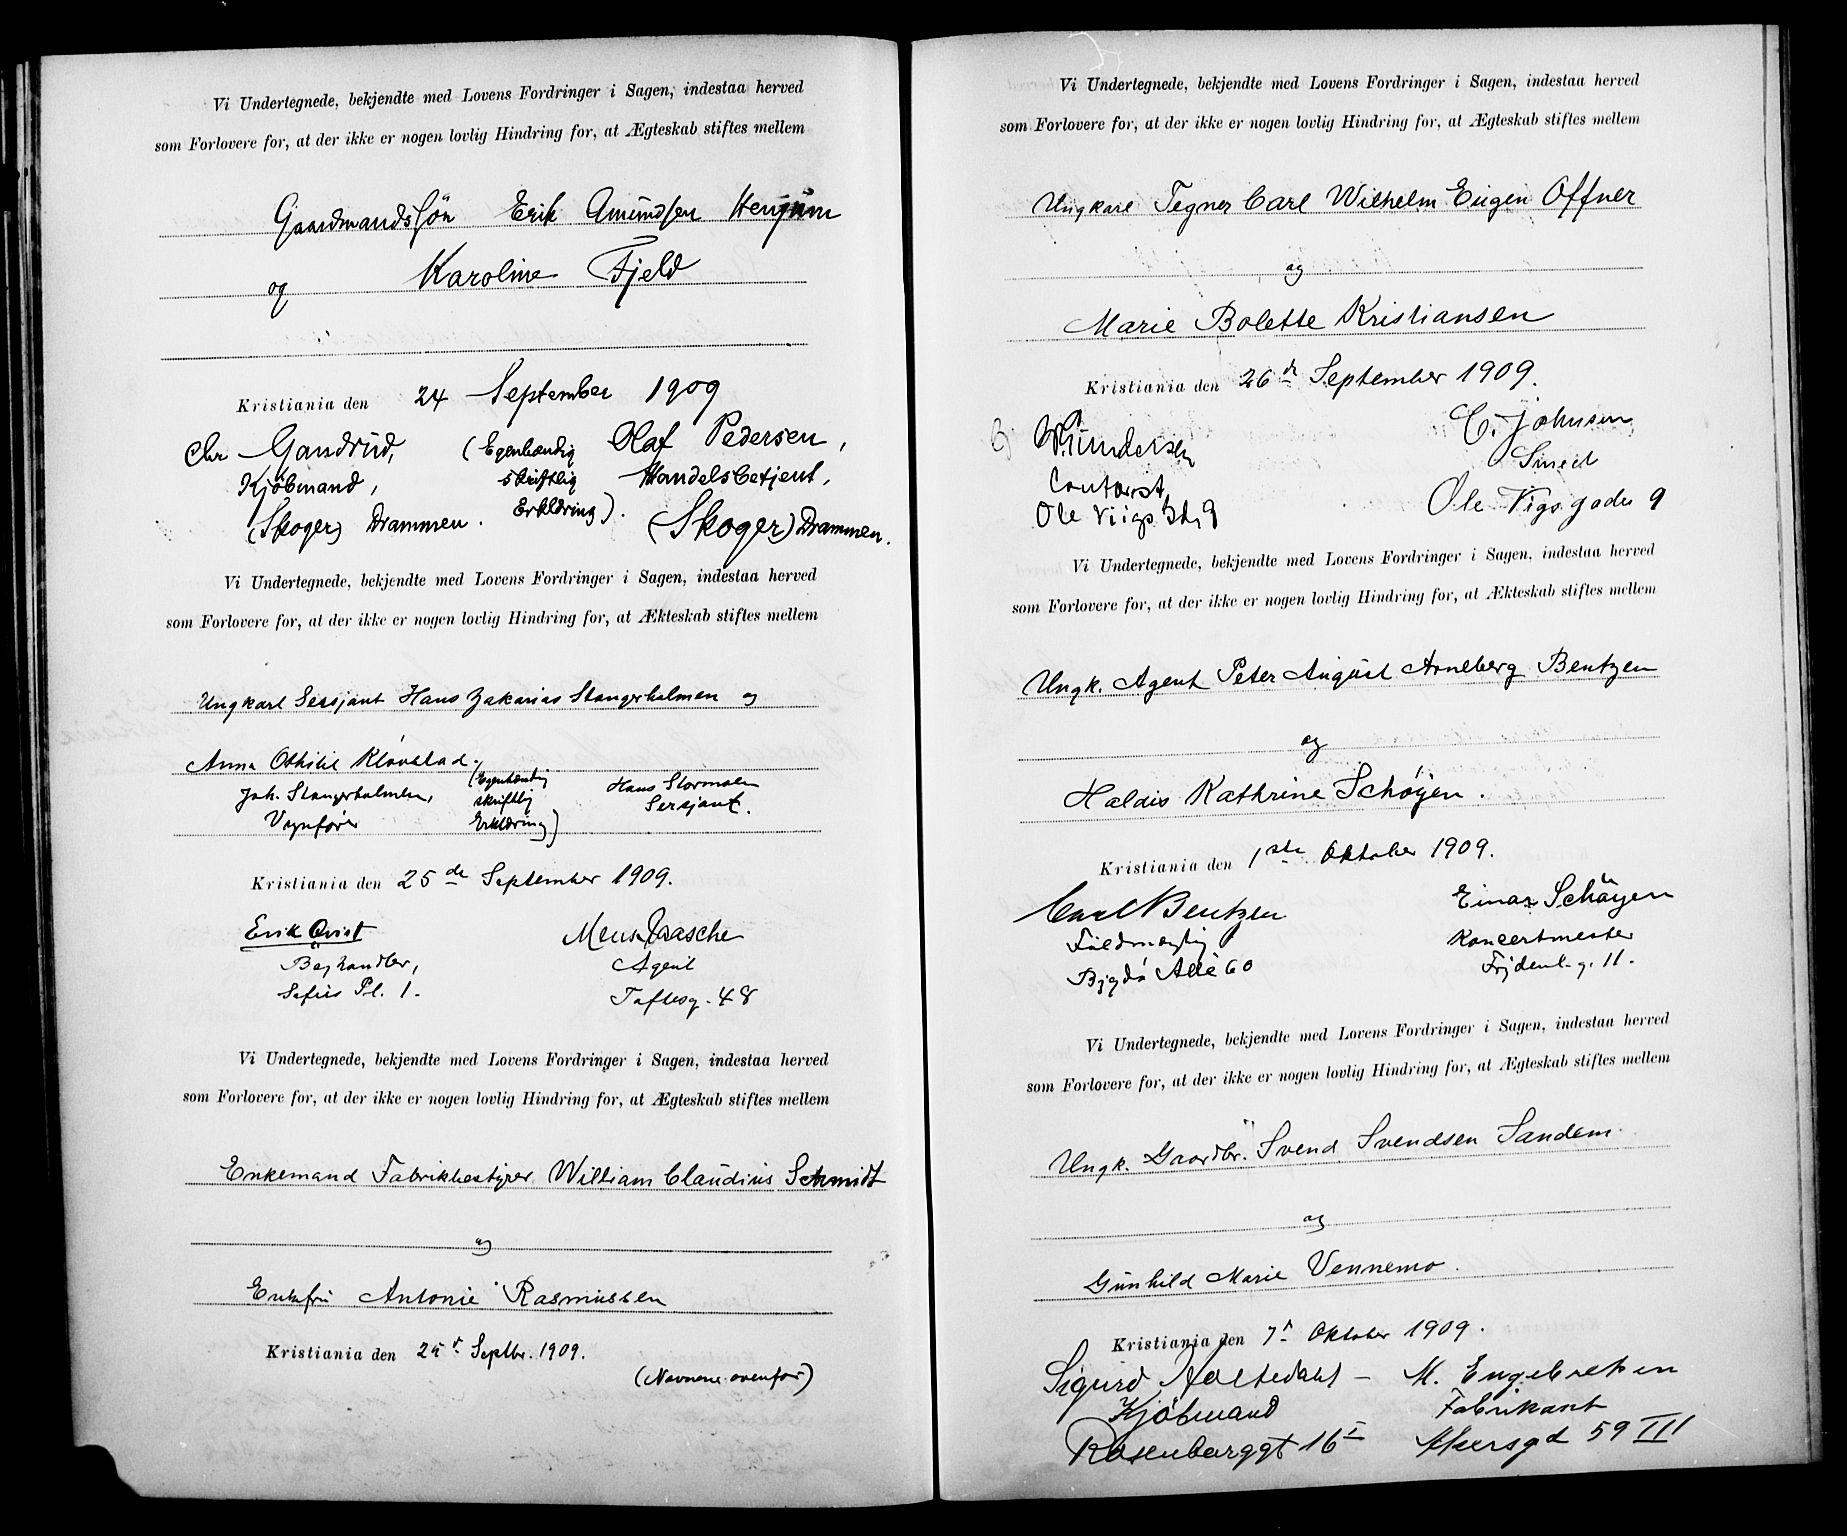 Vi Undertegnede, bekjendte med Lovens Fordringer i Sagen, indestaa herved
som Forlovere for, at der ikke er nogen lovlig Hindring for, at Ægteskab stiftes mellem
Gaardmandssön Erik Amundsen Henjum
og Karoline Fjeld
Kristiania den 24 September 1909
Chr Gandrud, (Egenhændig Olaf Pedersen,
Kjöbmand, skriftlig Handelsbetjent,
(Skoger) Drammen. Erklæring). (Skoger) Drammen.
Vi Undertegnede, bekjendte med Lovens Fordringer i Sagen, indestaa herved
som Forlovere for, at der ikke er nogen lovlig Hindring for, at Ækteskab stiftes mellem
Ungkarl Sersjant Hans Zakarias Stangerholmen og
Anna Othilie Kløvstad.
Joh. Stangerholmen, (Egenhændig Hans Stormoen
Vognfører skriftlig Sersjant.
Erklæring)
Kristiania den 25de September 1909.
Erik Qvist
Agent
Sofies Pl. 1. Toftesg. 48
Vi Undertegnede, bekjendte med Lovens Fordringer i Sagen, indestaa herved
som Forlovere for, at der ikke er nogen lovlig Hindring for, at Ægteskab stiftes mellem
Enkemand Fabrikbestyrer William Claudius Schmidt
og
Enkefru Antonie Rasmussen
Kristiania den 25d Septbr. 1909.
(Navnene ovenfor)
Vi Undertegnede, bekjendte med Lovens Fordringer i Sagen, indestaa herved
som Forlovere for, at der ikke er nogen lovlig Hindring for, at Ægteskab stiftes mellem
Ungkarl Tegner Carl Wilhelm Eugen Offner
og
Marie Bolette Kristiansen
Kristiania den 26de September 1909.
C. Johnsen
Smed
Ole Vigs gade 9
Contorist
Ole Viigs Gd. 9
Vi Undertegnede, bekjendte med Lovens Fordringer i Sagen, indestaa herved
som Forlovere for, at der ikke er nogen lovlig Hindring for, at Ækteskab stiftes mellem
Ungk. Agent Peter August Arneberg Bentzen
og
Haldis Kathrine Schøyen.
Kristiania den 1ste Oktober 1909.
Carl Bentzen Einar Schøyen
Fuldmægtig Koncertmester
Bygdö Allé 60 Frydenl. g. 11.
Vi Undertegnede, bekjendte med Lovens Fordringer i Sagen, indestaa herved
som Forlovere for, at der ikke er nogen lovlig Hindring for, at Ægteskab stiftes mellem
Ungk. Gaardbr. Svend Svendsen Sandem
og
Gunhild Marie Vennemo.
Kristiania den 7d Oktober 1909.
Sigurd Holtedahl - M. Engebretsen
Kjöbmand Fabrikant
Rosenborggt 16 I Akersgd 59 III